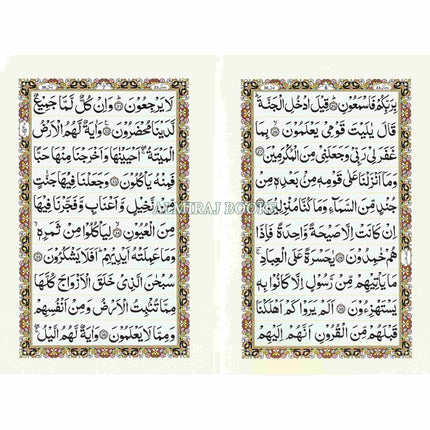 بِرَبِّكُمْ فَاسْمَعُوْنِ ۞ قِيْلَ ادْخُلِ الْجَنَّةَ ؕ
قَالَ يٰلَيْتَ قَوْمِيْ يَعْلَمُوْنَ ۞ بِمَا
غَفَرَ لِيْ رَبِّيْ وَجَعَلَنِيْ مِنَ الْمُكْرَمِيْنَ ۞
وَمَاۤ اَنْزَلْنَا عَلٰى قَوْمِهٖ مِنْۢ بَعْدِهٖ مِنْ
جُنْدٍ مِّنَ السَّمَآءِ وَمَا كُنَّا مُنْزِلِيْنَ ۞
اِنْ كَانَتْ اِلَّا صَيْحَةً وَّاحِدَةً فَاِذَا
هُمْ خٰمِدُوْنَ ۞ يٰحَسْرَةً عَلَى الْعِبَادِ ۚ
مَا يَاْتِيْهِمْ مِّنْ رَّسُوْلٍ اِلَّا كَانُوْا بِهٖ
يَسْتَهْزِءُوْنَ ۞ اَلَمْ يَرَوْا كَمْ اَهْلَكْنَا
قَبْلَهُمْ مِّنَ الْقُرُوْنِ اَنَّهُمْ اِلَيْهِمْ
لَا يَرْجِعُوْنَ ۞ وَاِنْ كُلٌّ لَّمَّا جَمِيْعٌ
لَّدَيْنَا مُحْضَرُوْنَ ۞ وَاٰيَةٌ لَّهُمُ الْاَرْضُ
الْمَيْتَةُ ۖ اَحْيَيْنٰهَا وَاَخْرَجْنَا مِنْهَا حَبًّا
فَمِنْهُ يَاْكُلُوْنَ ۞ وَجَعَلْنَا فِيْهَا جَنّٰتٍ
مِّنْ نَّخِيْلٍ وَّاَعْنَابٍ وَّفَجَّرْنَا فِيْهَا
مِنَ الْعُيُوْنِ ۞ لِيَاْكُلُوْا مِنْ ثَمَرِهٖ ۙ
وَمَا عَمِلَتْهُ اَيْدِيْهِمْ ؕ اَفَلَا يَشْكُرُوْنَ ۞
سُبْحٰنَ الَّذِيْ خَلَقَ الْاَزْوَاجَ كُلَّهَا
مِمَّا تُنْۢبِتُ الْاَرْضُ وَمِنْ اَنْفُسِهِمْ
وَمِمَّا لَا يَعْلَمُوْنَ ۞ وَاٰيَةٌ لَّهُمُ الَّيْلُ ۖ
ALMIRAJ BOOKS